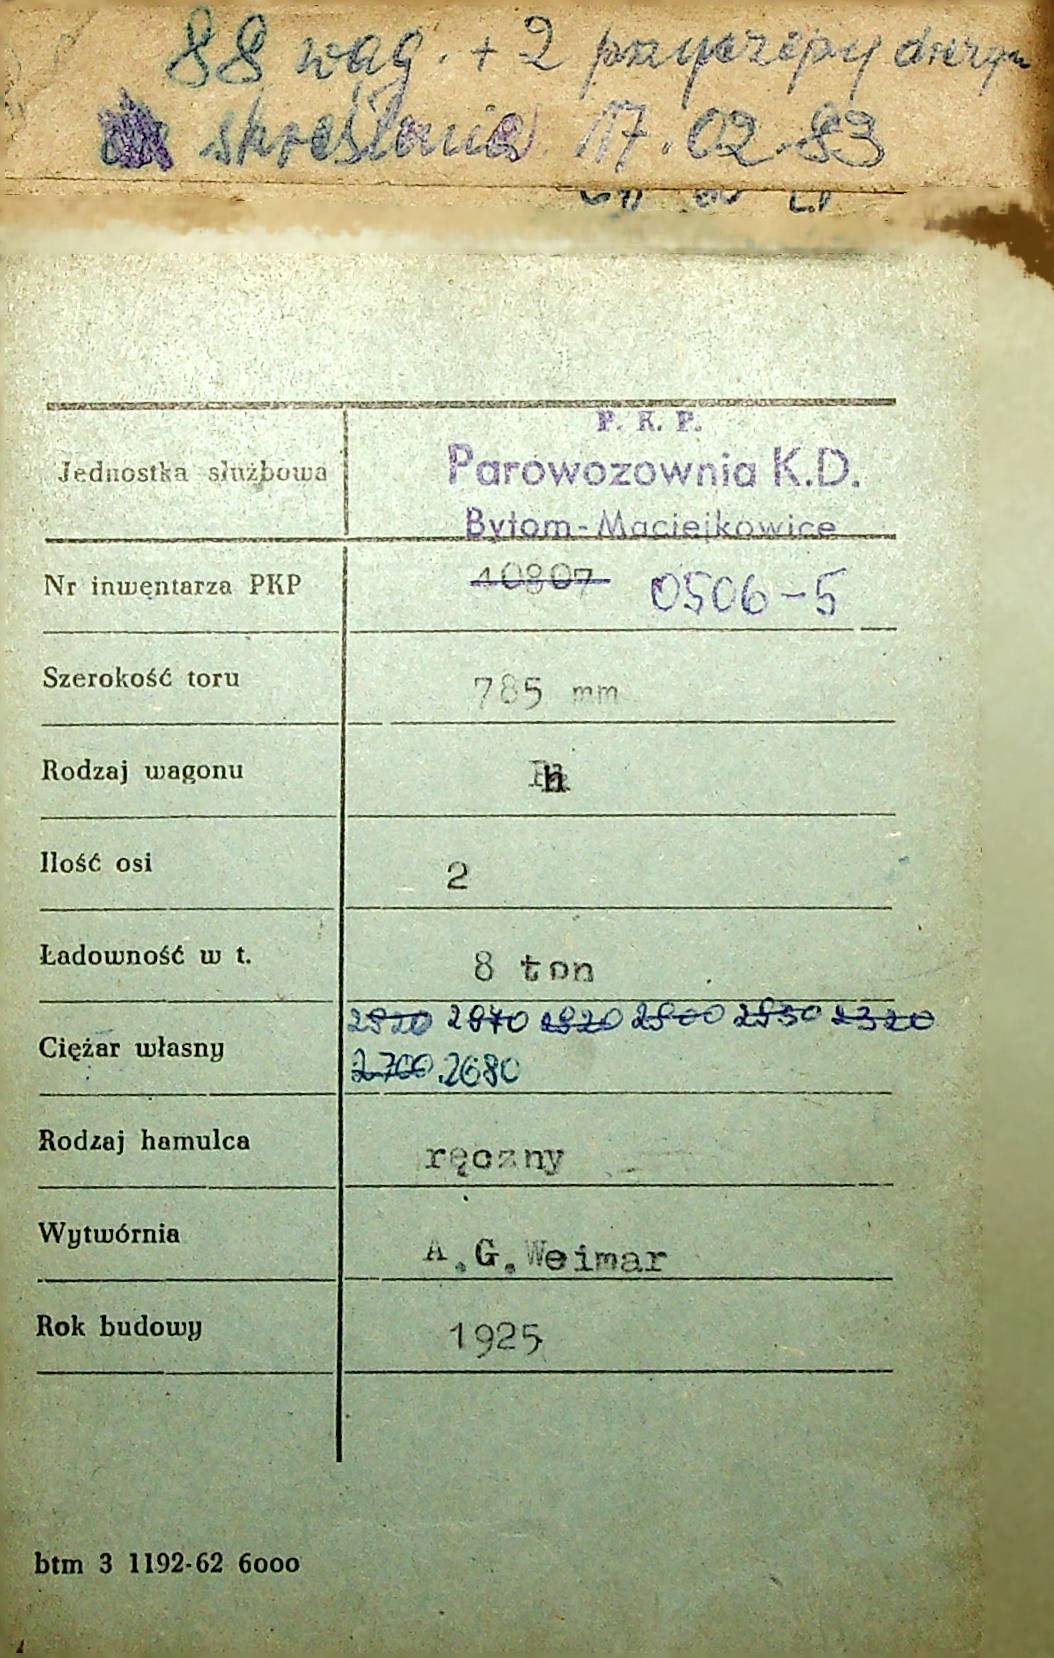 88 wag. + 2 przyczepy drezyn
skreślenie 17.02.83
P. K. P.
Jednostka służbowa Parowozownia K.D.
Bytom-Maciejkowice
Nr inwentarza PKP 10807 0506-5
Szerokość toru 785 mm
Rodzaj wagonu
Ilość osi 2
Ładowność w t. 8 ton
2970 2820 2900 2320
Ciężar własny 2700 2680
Rodzaj hamulca ręczny
Wytwórnia A.G.Weimar
Rok budowy 1925
btm 3 1192-62 6000